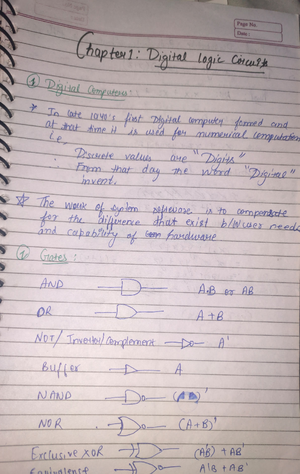 Page No.
Date:
Chapter 1: Digital Logic Circuits
① Digital Computers:
* In late 1940's first Digital computer formed and
at that time it is used for numerical computation
i.e,
Discrete values are "Digits"
From that day the word "Digital"
invent.
* The work of system software is to compensate
for the difference that exist b/w user needs
and capability of hardware
① Gates:
AND A.B or AB
OR A+B
NOT/ Invertor/Complement A'
Buffer A
NAND (AB)'
NOR (A+B)'
Exclusive XOR (A'B) + AB'
Equivalence